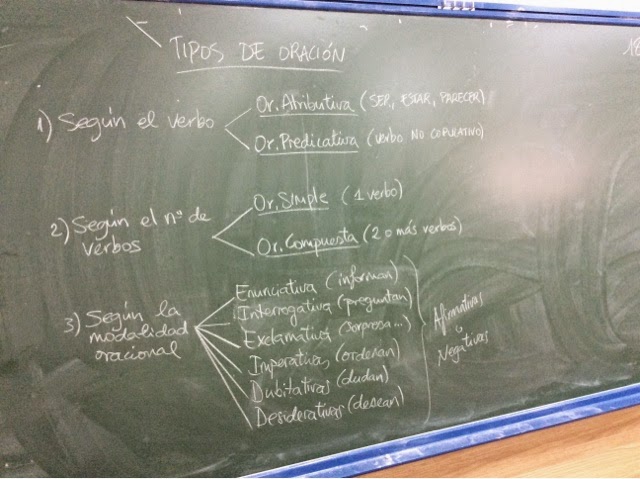 TIPOS DE ORACIÓN
1) Según el verbo
Or. Atributiva (SER, ESTAR, PARECER)
Or. Predicativa (verbo NO COPULATIVO)
2) Según el nº de
verbos
Or. Simple (1 verbo)
Or. Compuesta (2 o más verbos)
3) Según la
modalidad
oracional
Enunciativa (informan)
Interrogativa (preguntan)
Exclamativa (sorpresa...)
Imperativas (ordenan)
Dubitativas (dudan)
Desiderativas (desean)
Afirmativas
o
Negativas